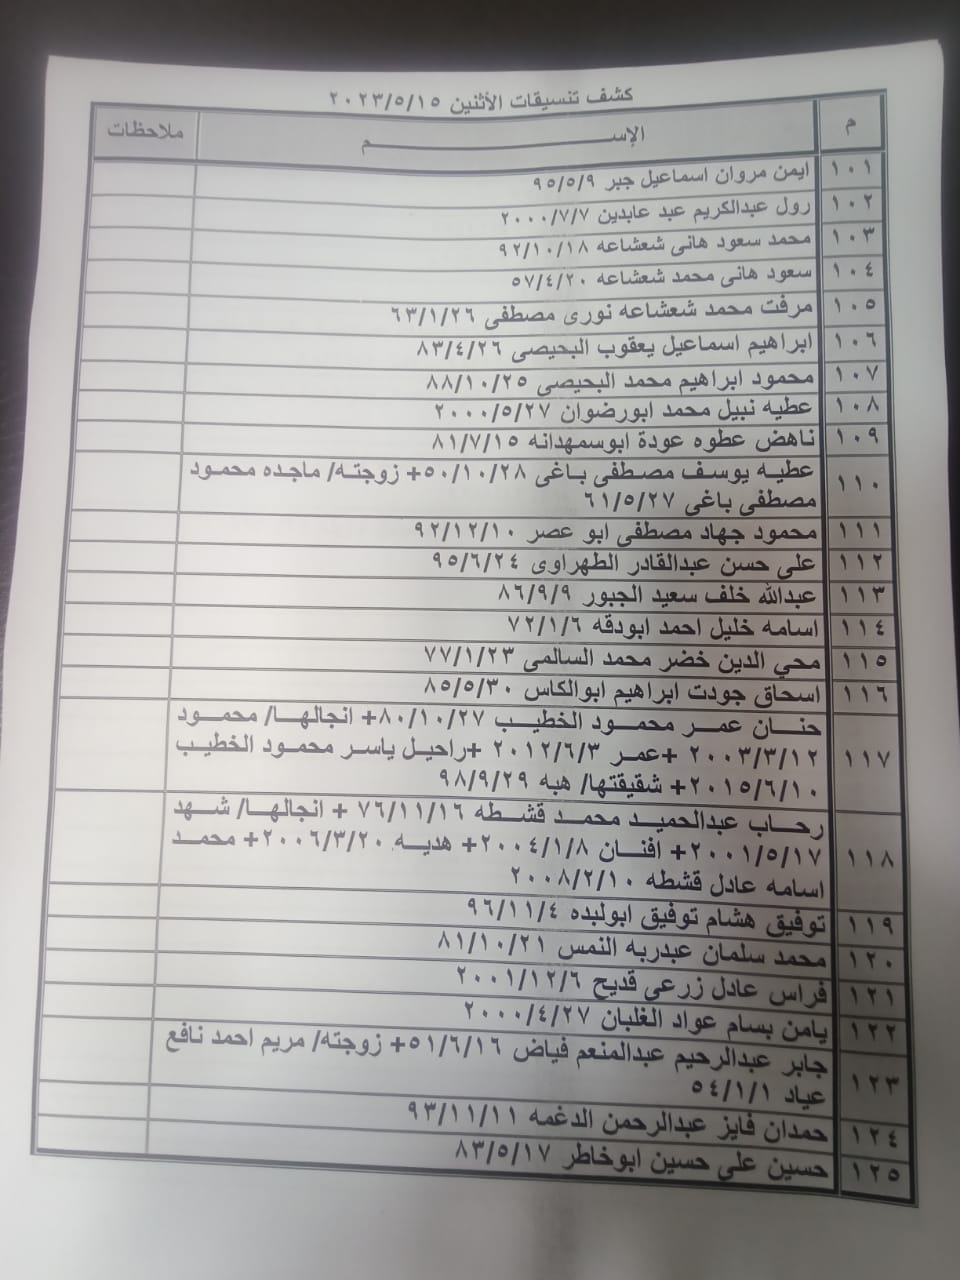 كشف تنسيقات الأثنين ٢٠٢٣/٥/١٥
م الإســــــم ملاحظات
١٠١ ايمن مروان اسماعيل جبر ٩٥/٥/٩
١٠٢ رول عبدالكريم عبد عابدين ٢٠٠٠/٧/٧
١٠٣ محمد سعود هانى شعشاعه ٩٢/١٠/١٨
١٠٤ سعود هانى محمد شعشاعه ٥٧/٤/٢٠
١٠٥ مرفت محمد شعشاعه نورى مصطفى ٦٣/١/٢٦
١٠٦ ابراهيم اسماعيل يعقوب البحيصى ٨٣/٤/٢٦
١٠٧ محمود ابراهيم محمد البحيصى ٨٨/١٠/٢٥
١٠٨ عطيه نبيل محمد ابورضوان ٢٠٠٠/٥/٢٧
١٠٩ ناهض عطوه عودة ابوسمهدانه ٨١/٧/١٥
١١٠ عطيه يوسف مصطفى باغى ٥٠/١٠/٢٨+ زوجته/ ماجده محمود
مصطفى باغى ٦١/٥/٢٧
١١١ محمود جهاد مصطفى ابو عصر ٩٢/١٢/١٠
١١٢ على حسن عبدالقادر الطهراوى ٩٥/٦/٢٤
١١٣ عبدالله خلف سعيد الجبور ٨٦/٩/٩
١١٤ اسامه خليل احمد ابودقه ٧٢/١/٦
١١٥ محي الدين خضر محمد السالمى ٧٧/١/٢٣
١١٦ اسحاق جودت ابراهيم ابوالكاس ٨٥/٥/٣٠
١١٧ حنان عمر محمود الخطيب ٨٠/١٠/٢٧+ انجالها/ محمود
٢٠٠٣/٣/١٢ +عمر ٢٠١٢/٦/٣ +راحيل ياسر محمود الخطيب
٢٠١٥/٦/١٠+ شقيقتها/ هبه ٩٨/٩/٢٩
١١٨ رحاب عبدالحميد محمد قشطه ٧٦/١١/١٦ + انجالها/ شهد
٢٠٠١/٥/١٧+ افنان ٢٠٠٤/١/٨+ هديه ٢٠٠٦/٣/٢٠+ محمد
اسامه عادل قشطه ٢٠٠٨/٢/١٠
١١٩ توفيق هشام توفيق ابولبده ٩٦/١١/٤
١٢٠ محمد سلمان عبدربه النمس ٨١/١٠/٢١
١٢١ فراس عادل زرعى قديح ٢٠٠١/١٢/٦
١٢٢ يامن بسام عواد الغلبان ٢٠٠٠/٤/٢٧
١٢٣ جابر عبدالرحيم عبدالمنعم فياض ٥١/٦/١٦+ زوجته/ مريم احمد نافع
عياد ٥٤/١/١
١٢٤ حمدان فايز عبدالرحمن الدغمه ٩٣/١١/١١
١٢٥ حسين على حسين ابوخاطر ٨٣/٥/١٧